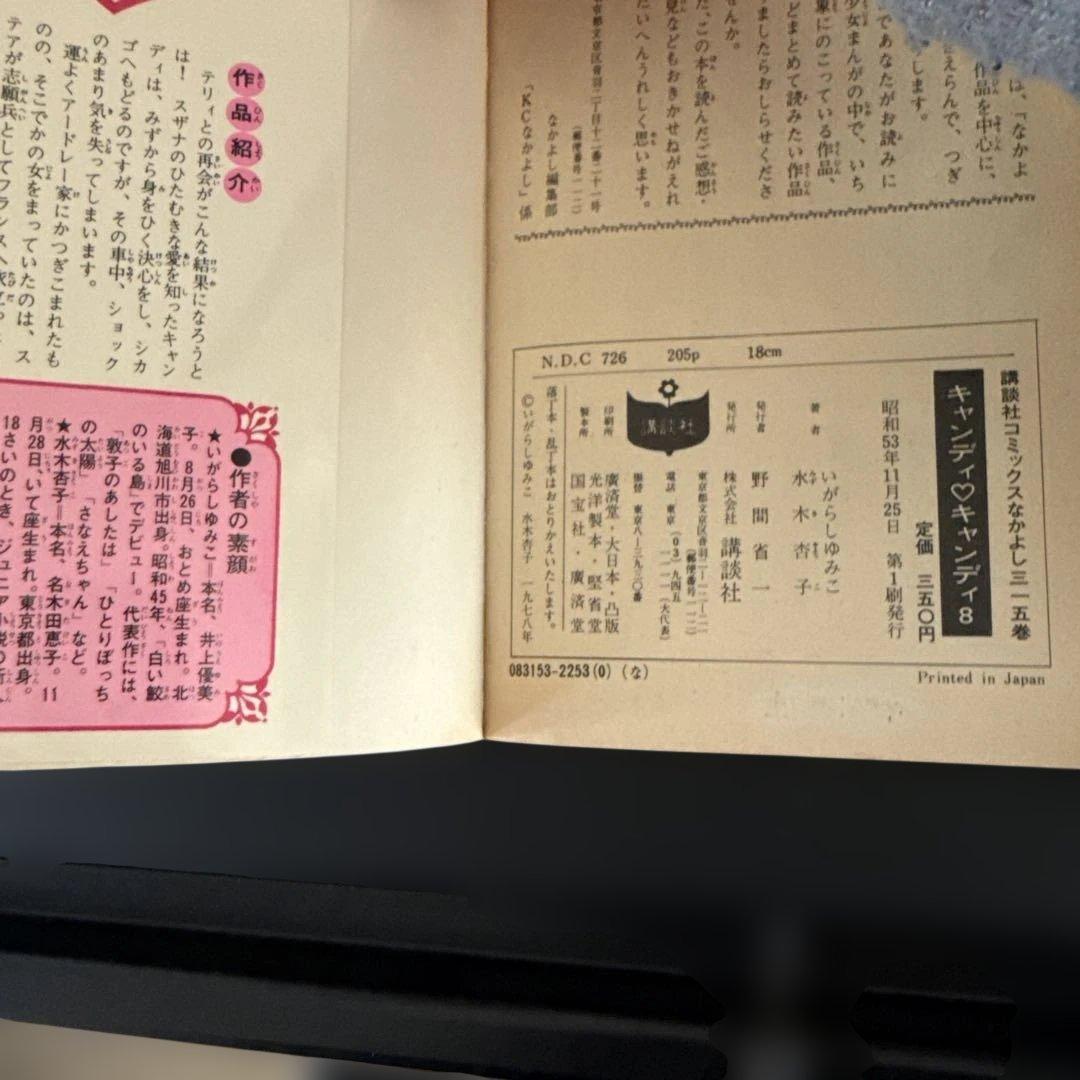 は、「なかよ
作品を中心に、
えらんで、つぎ
します。
少女まんがの中で、いち
であなたがお読みに
象にのこっている作品、
どまとめて読みたい作品
ましたらおしらせくださ
せんか。
た、この本を読んだご感想・
見などもおきかせねがえれ
たいへんうれしく思います。
東京都文京区音羽二-十二-二十一号
(郵便番号一一二)
なかよし編集部
「KCなかよし」係
N.D.C 726 205p 18cm
講談社コミックスなかよし三一五巻
キャンディ♡キャンディ8
定価 三五〇円
昭和53年11月25日 第1刷発行
著者 いがらしゆみこ
水木杏子
発行者 野間省一
発行所 株式会社 講談社
東京都文京区音羽二-一二-二一
(郵便番号一一二)
電話 東京(03)九四五
一一一一(大代表)
振替 東京八-三九三〇番
講談社
印刷所 廣済堂・大日本・凸版
製本所 光洋製本・堅省堂
国宝社・廣済堂
落丁本・乱丁本はおとりかえいたします。
©いがらしゆみこ 水木杏子 一九七八年
083153-2253(0)(な)
Printed in Japan
作品紹介
テリィとの再会がこんな結果になろうと
は! スザナのひたむきな愛を知ったキャン
ディは、みずから身をひく決心をし、シカ
ゴへもどるのですが、その車中、ショック
のあまり気を失ってしまいます。
運よくアードレー家にかつぎこまれたも
のの、そこでかの女をまっていたのは、ス
テアが志願兵としてフランスへ旅立っ
●作者の素顔
★いがらしゆみこ=本名、井上優美
子。8月26日、おとめ座生まれ。北
海道旭川市出身。昭和45年、「白い鮫
のいる島」でデビュー。代表作には、
「敦子のあしたは」「ひとりぼっち
の太陽」「さなえちゃん」など。
★水木杏子=本名、名木田恵子。11
月28日、いて座生まれ。東京都出身。
18さいのとき、ジュニア小説の新人